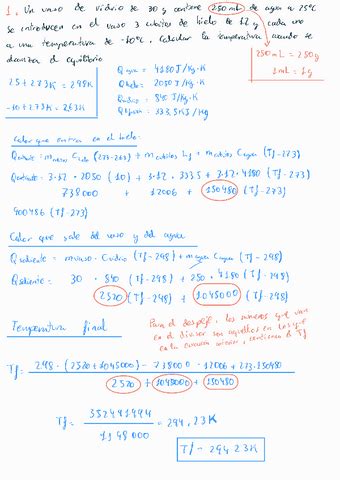 1. Un vaso de vidrio de 30 g contiene 250 mL de agua a 25ºC
se introducen en el vaso 3 cubitos de hielo de 12 g cada uno
a una temperatura de -10ºC, Calcular la temperatura cuando se
alcanza el equilibrio
250 mL = 250g
1mL = 1g
25 + 273K = 298K
-10 + 273K = 263K
agua = 4180 J/kg·K
hielo = 2050 J/kg·K
vidrio = 840 J/kg·K
= 333,5KJ/kg
Calor que entra en el hielo:
(Tf-273)
3·12 · 2050 (10) + 3·12 · 333,5 + 3·12 · 4180 (Tf-273)
738000 + 12006 + 150480 (Tf-273)
900486 (Tf-273)
Calor que sale del vaso y del agua
Qsaliente = mvaso · Cvidrio (Tf-298) + magua Cagua (Tf-298)
Qsaliente = 30 · 840 (Tf-298) + 250 · 4180 (Tf-298)
2520 (Tf-298) + 1045000 (Tf-298)
Temperatura final
Para el despeje, los números que van
en el divisor son aquellos en los que
en la ecuación anterior, contienen a Tf
Tf = 298 · (2520+1045000) - 738000 - 12006 + 273·150480
2520 + 1045000 + 150480
Tf = = 294,23K
1198000
Tf = 294,23K